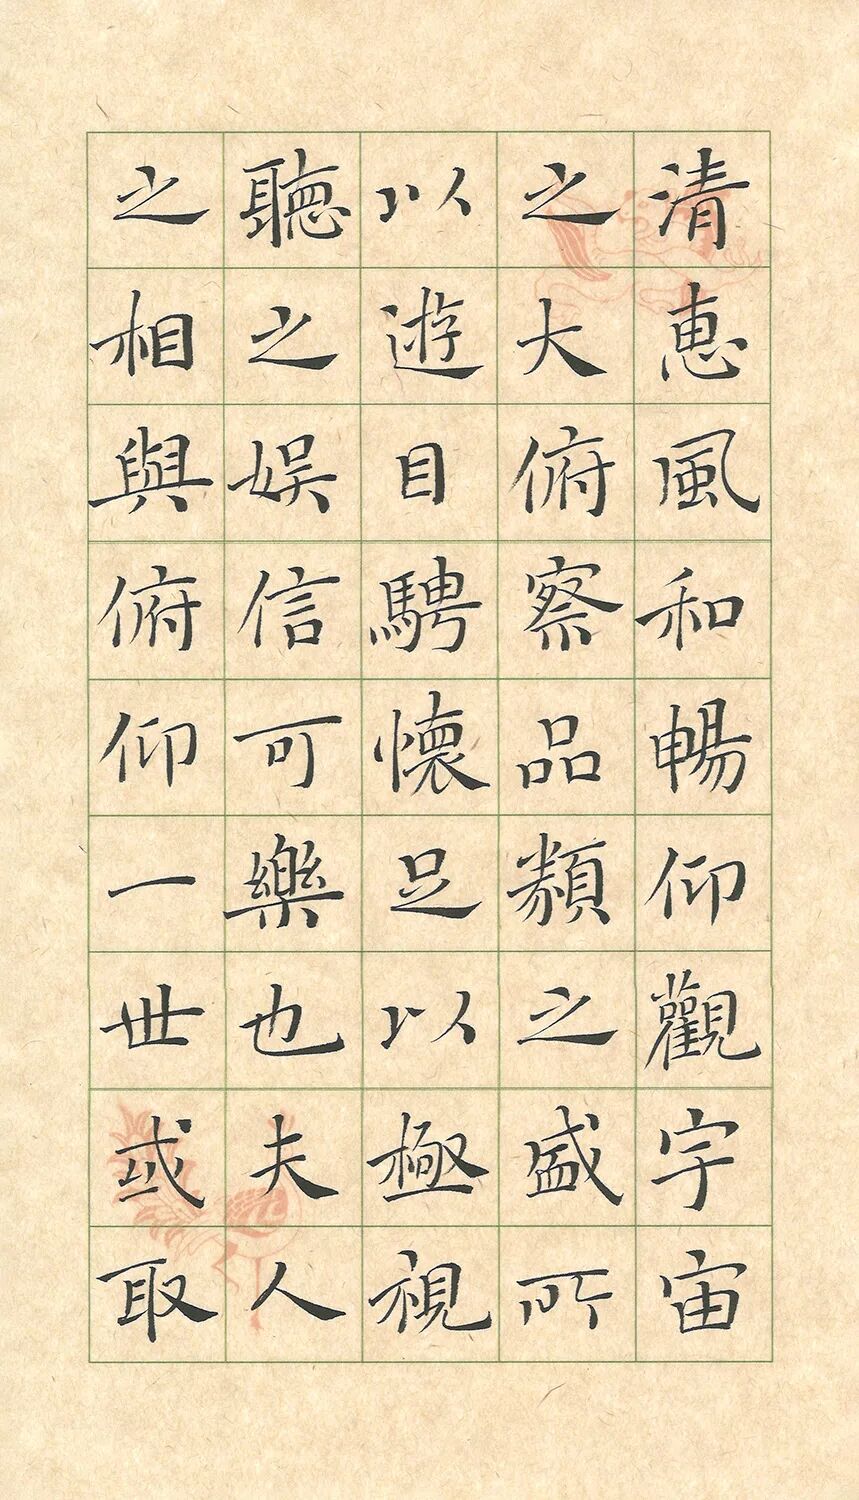 清惠風和暢仰觀宇宙
之大俯察品類之盛所
以遊目騁懷足以極視
聽之娛信可樂也夫人
之相與俯仰一世或取